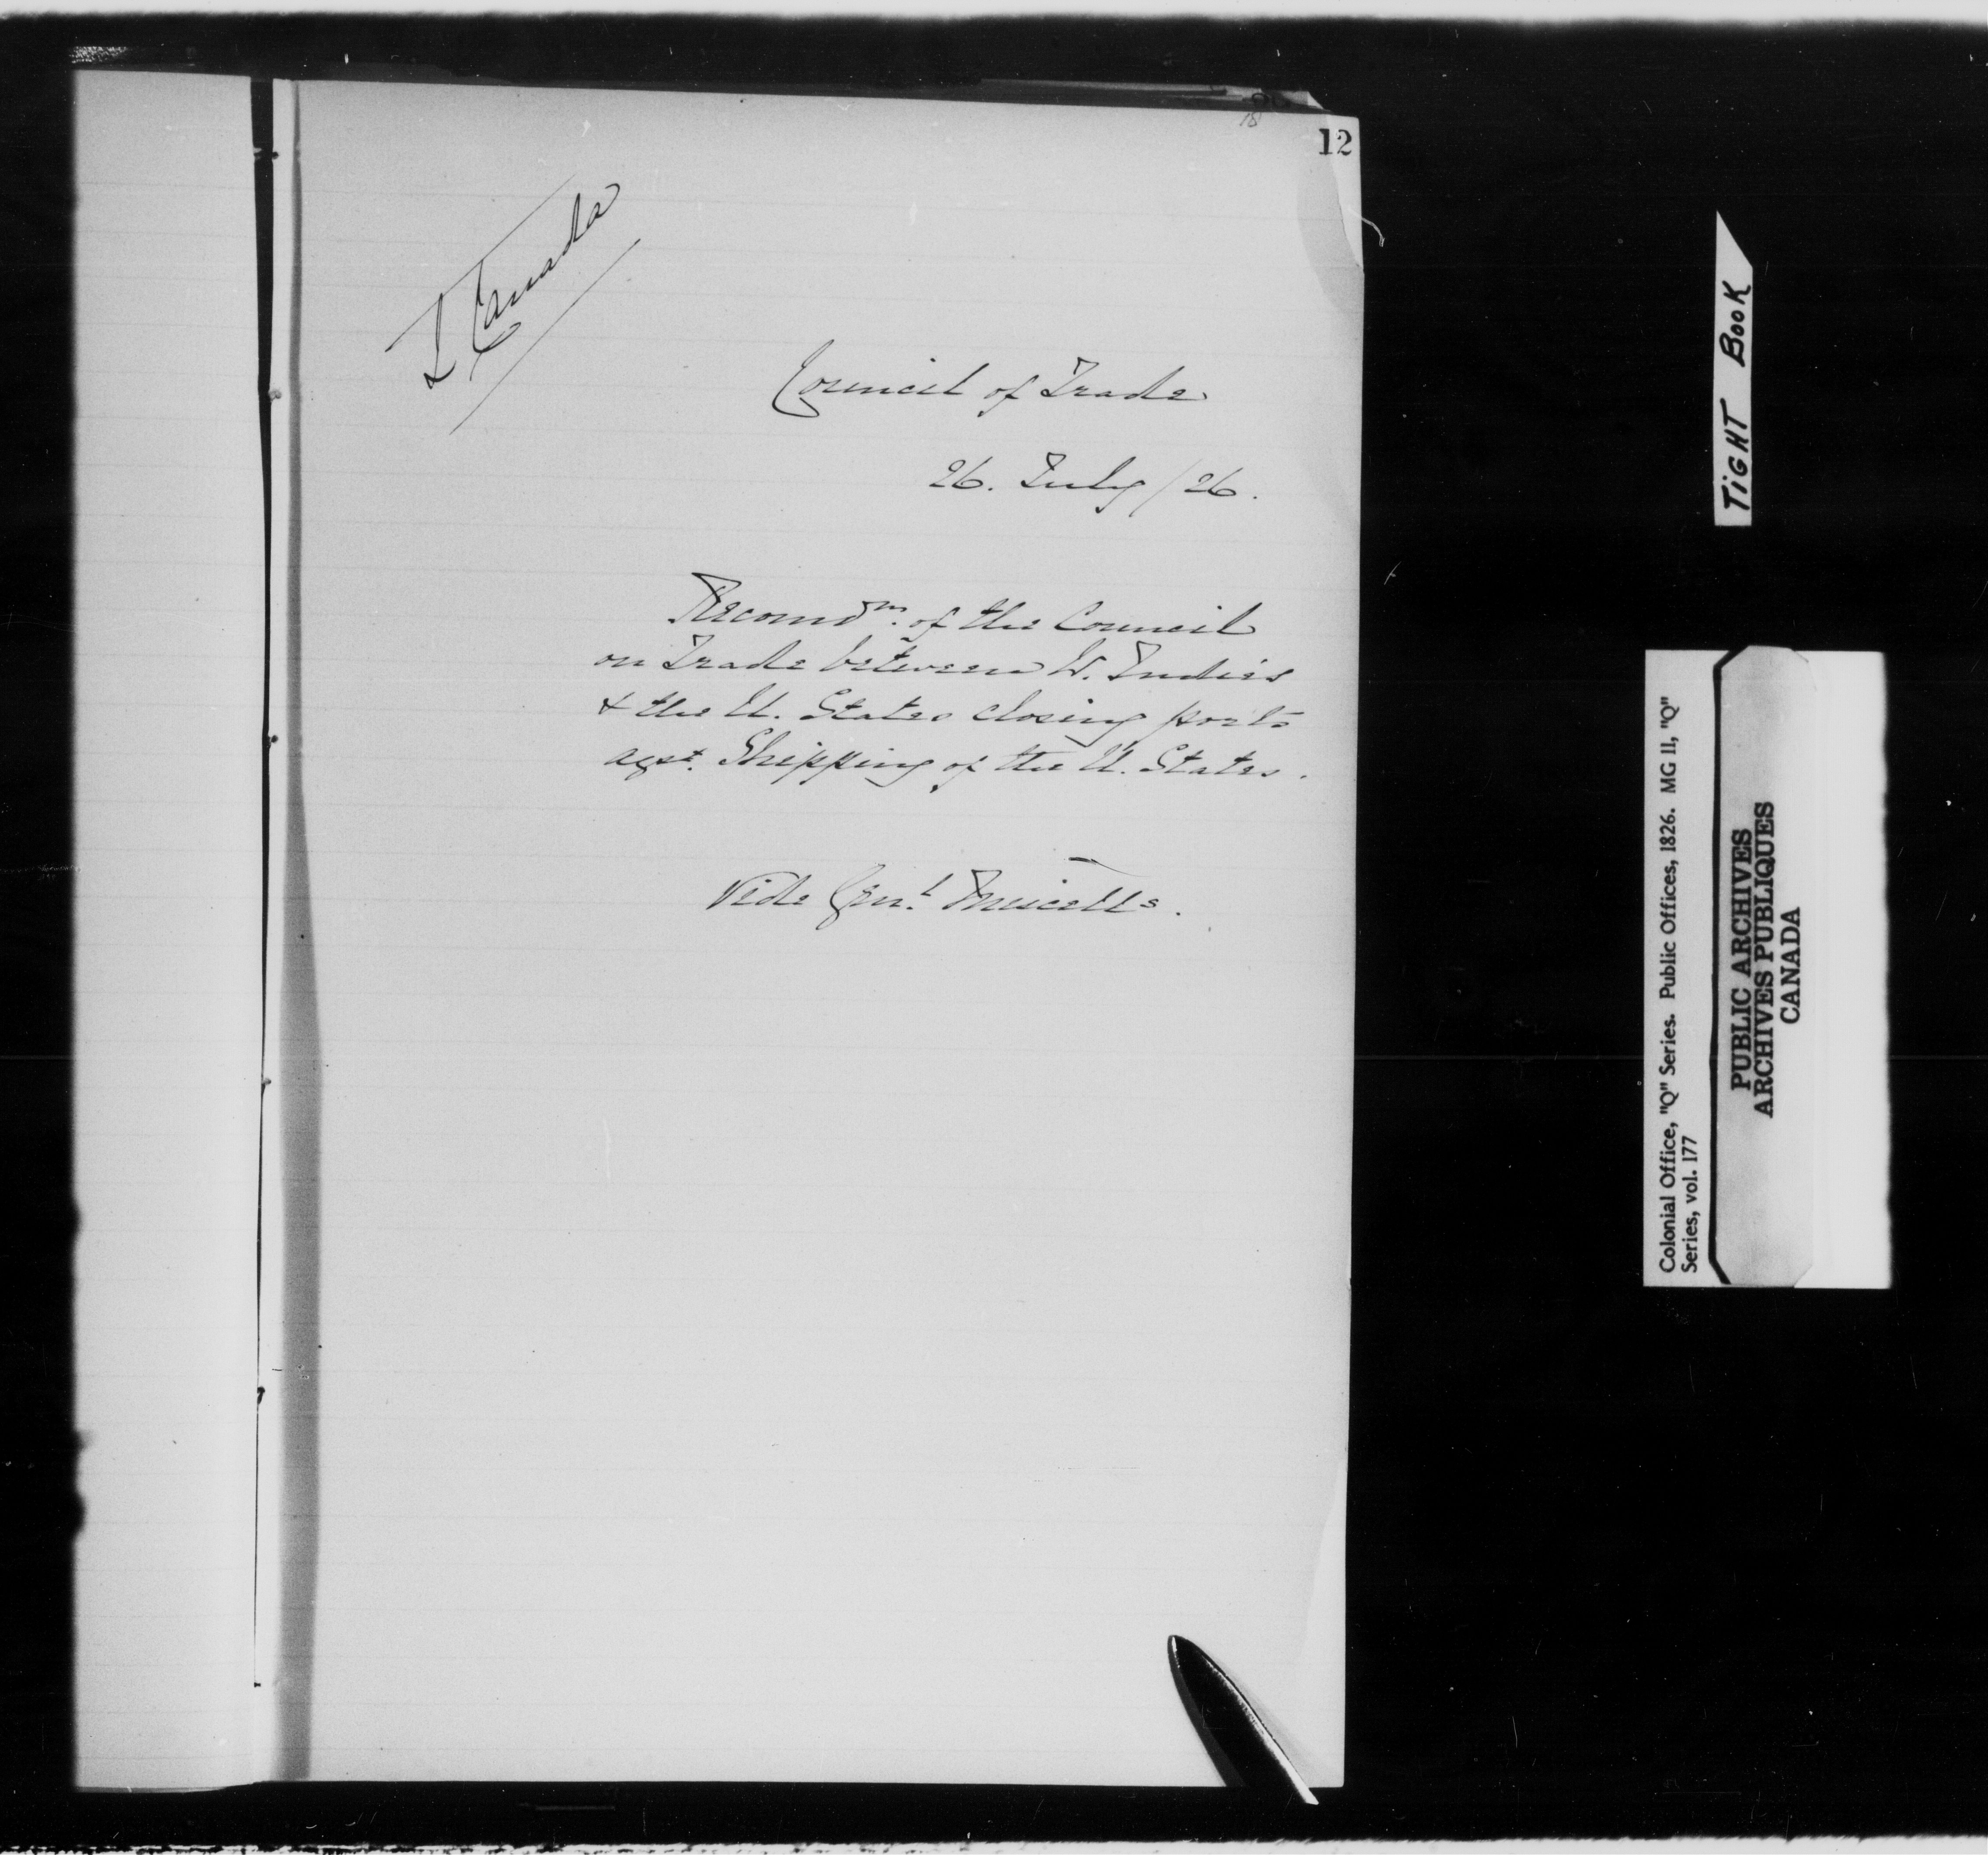 12
L Canada
Council of Trade
26. July /26.
Recomdn. of the Council
on Trade between W. Indies
& the U. States closing ports
agst. Shipping of the U. States.
Vide Genl.
TiGHT BOOK
Colonial Office, "Q" Series. Public Offices, 1826. MG 11, "Q"
Series, vol. 177
PUBLIC ARCHIVES
ARCHIVES PUBLIQUES
CANADA